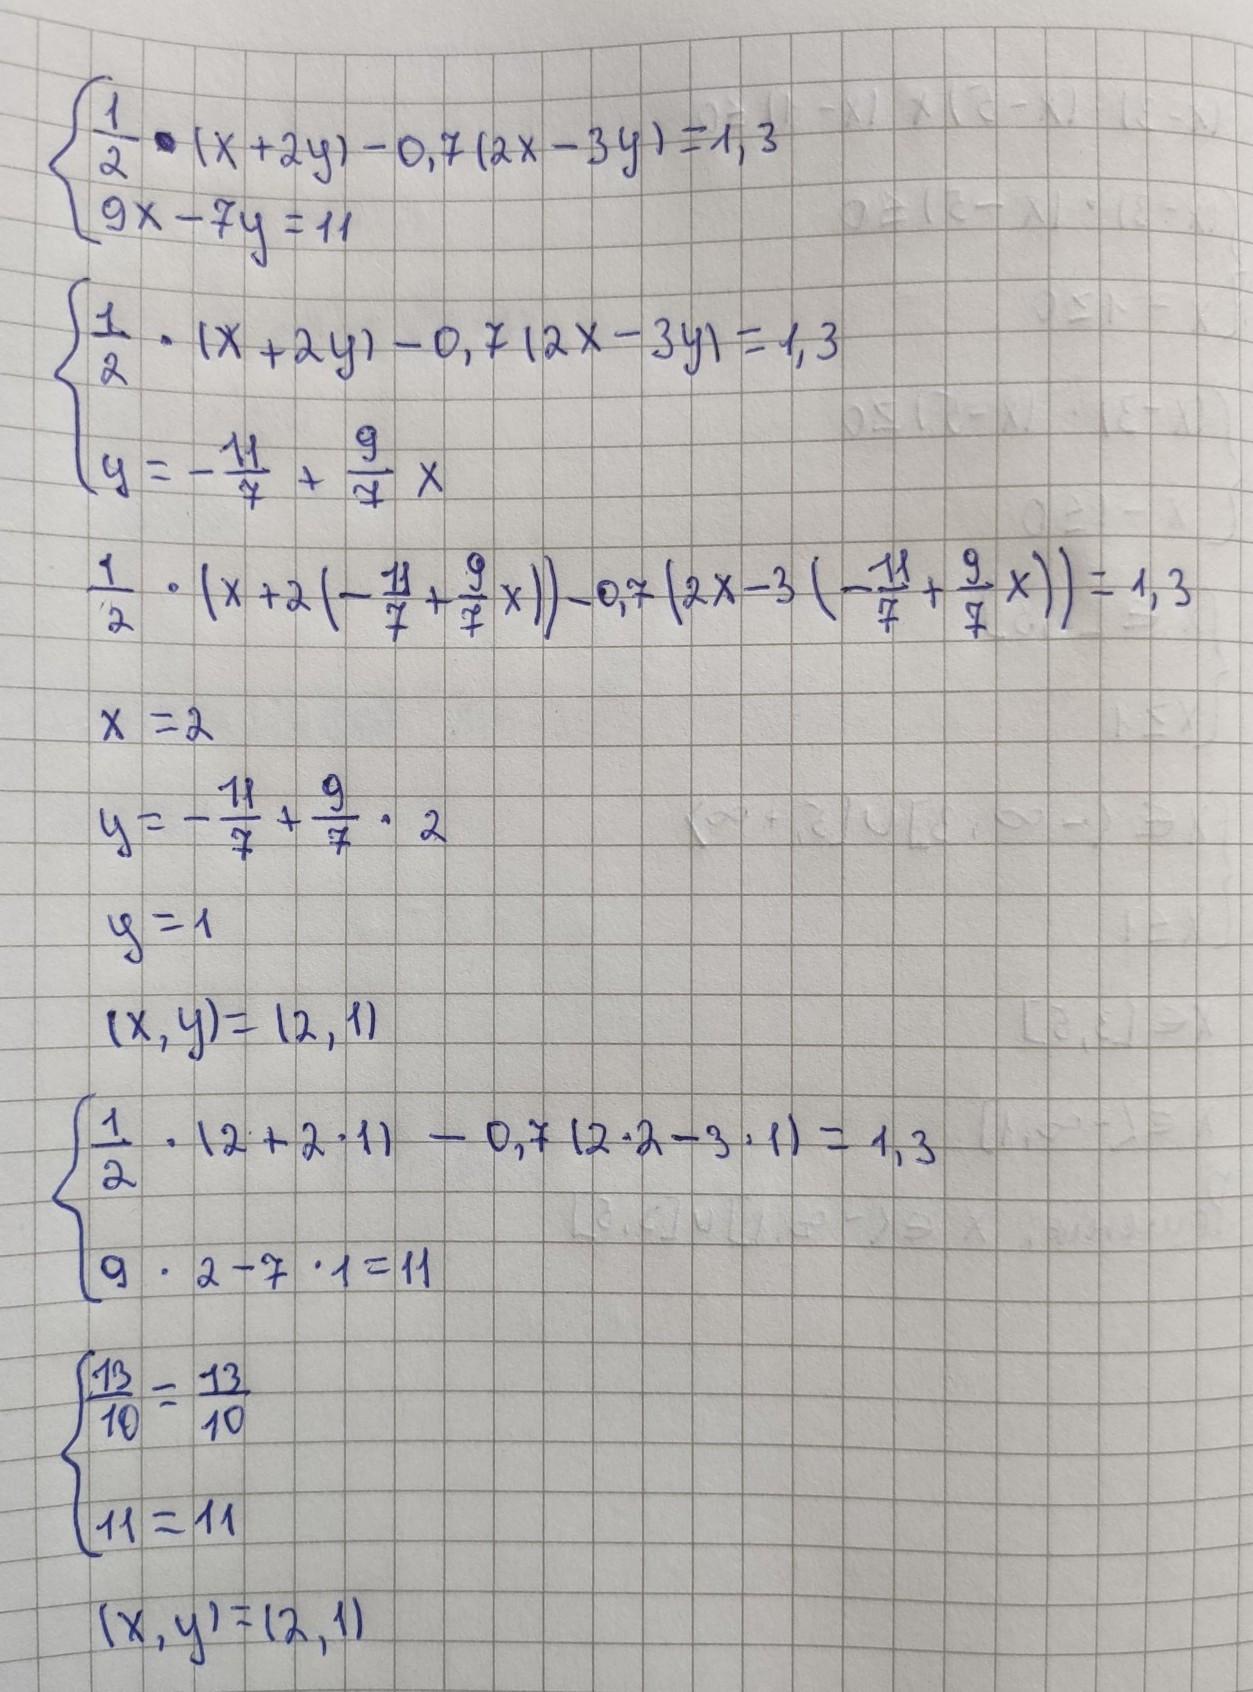 1/2 • (x + 2y) - 0,7(2x - 3y) = 1,3
9x - 7y = 11
1/2 · (x + 2y) - 0,7(2x - 3y) = 1,3
y = - 11/7 + 9/7 x
1/2 · (x + 2(- 11/7 + 9/7 x)) - 0,7(2x - 3(- 11/7 + 9/7 x)) = 1,3
x = 2
y = - 11/7 + 9/7 · 2
y = 1
(x, y) = (2, 1)
1/2 · (2 + 2 · 1) - 0,7(2 · 2 - 3 · 1) = 1,3
9 · 2 - 7 · 1 = 11
13/10 = 13/10
11 = 11
(x, y) = (2, 1)